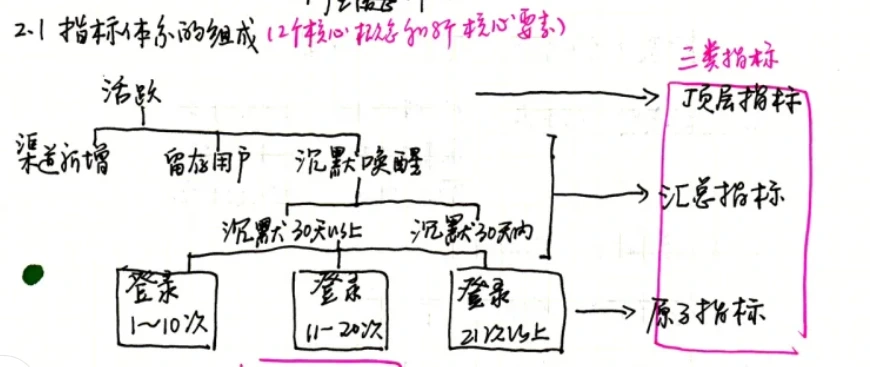 2.1 指标体系的组成 (12个核心概念和8个核心要素)
三类指标
活跃
顶层指标
渠道新增 留存用户 沉默唤醒
汇总指标
沉默30天以上 沉默30天内
登录 登录 登录
1~10次 11-20次 21次以上
原子指标